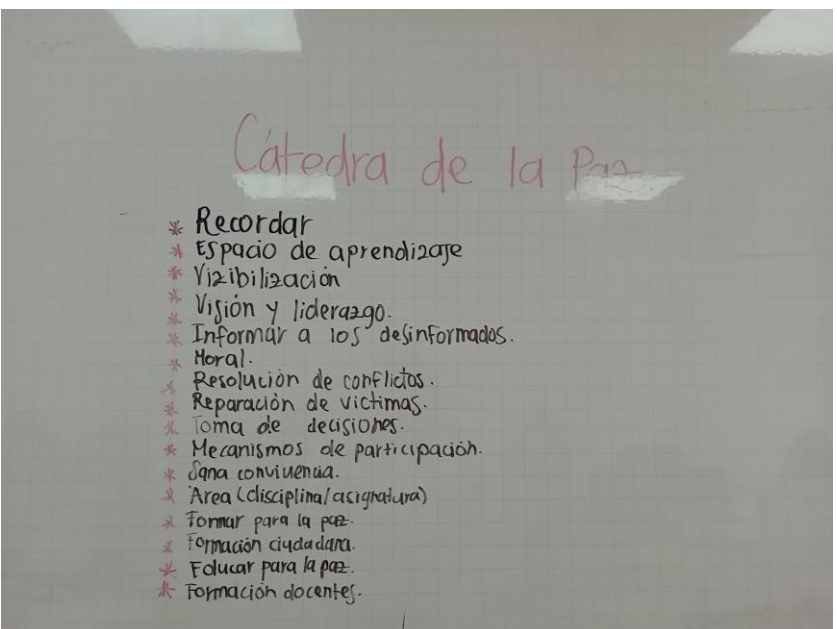 Cátedra de la Paz
* Recordar
* Espacio de aprendizaje
* Vizibilización
* Visión y liderazgo.
* Informar a los desinformados.
* Moral.
* Resolución de conflictos.
* Reparación de victimas.
* Toma de decisiones.
* Mecanismos de participación.
* Sana convivencia.
* Area (disciplina/asignatura)
* Formar para la paz.
* Formación ciudadana.
* Educar para la paz.
* Formación docentes.